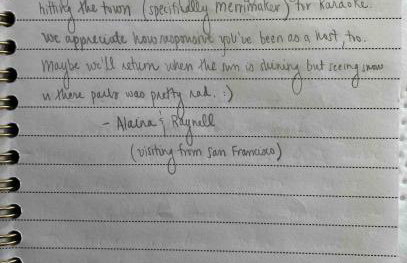 hitting the town (specifically merrimaker) for karaoke.
we appreciate how responsive you've been as a host, too.
Maybe we'll return when the sun is shining but seeing snow
n these parts was pretty rad. :)
- Alaina & Raynell
(visiting from San Francisco)